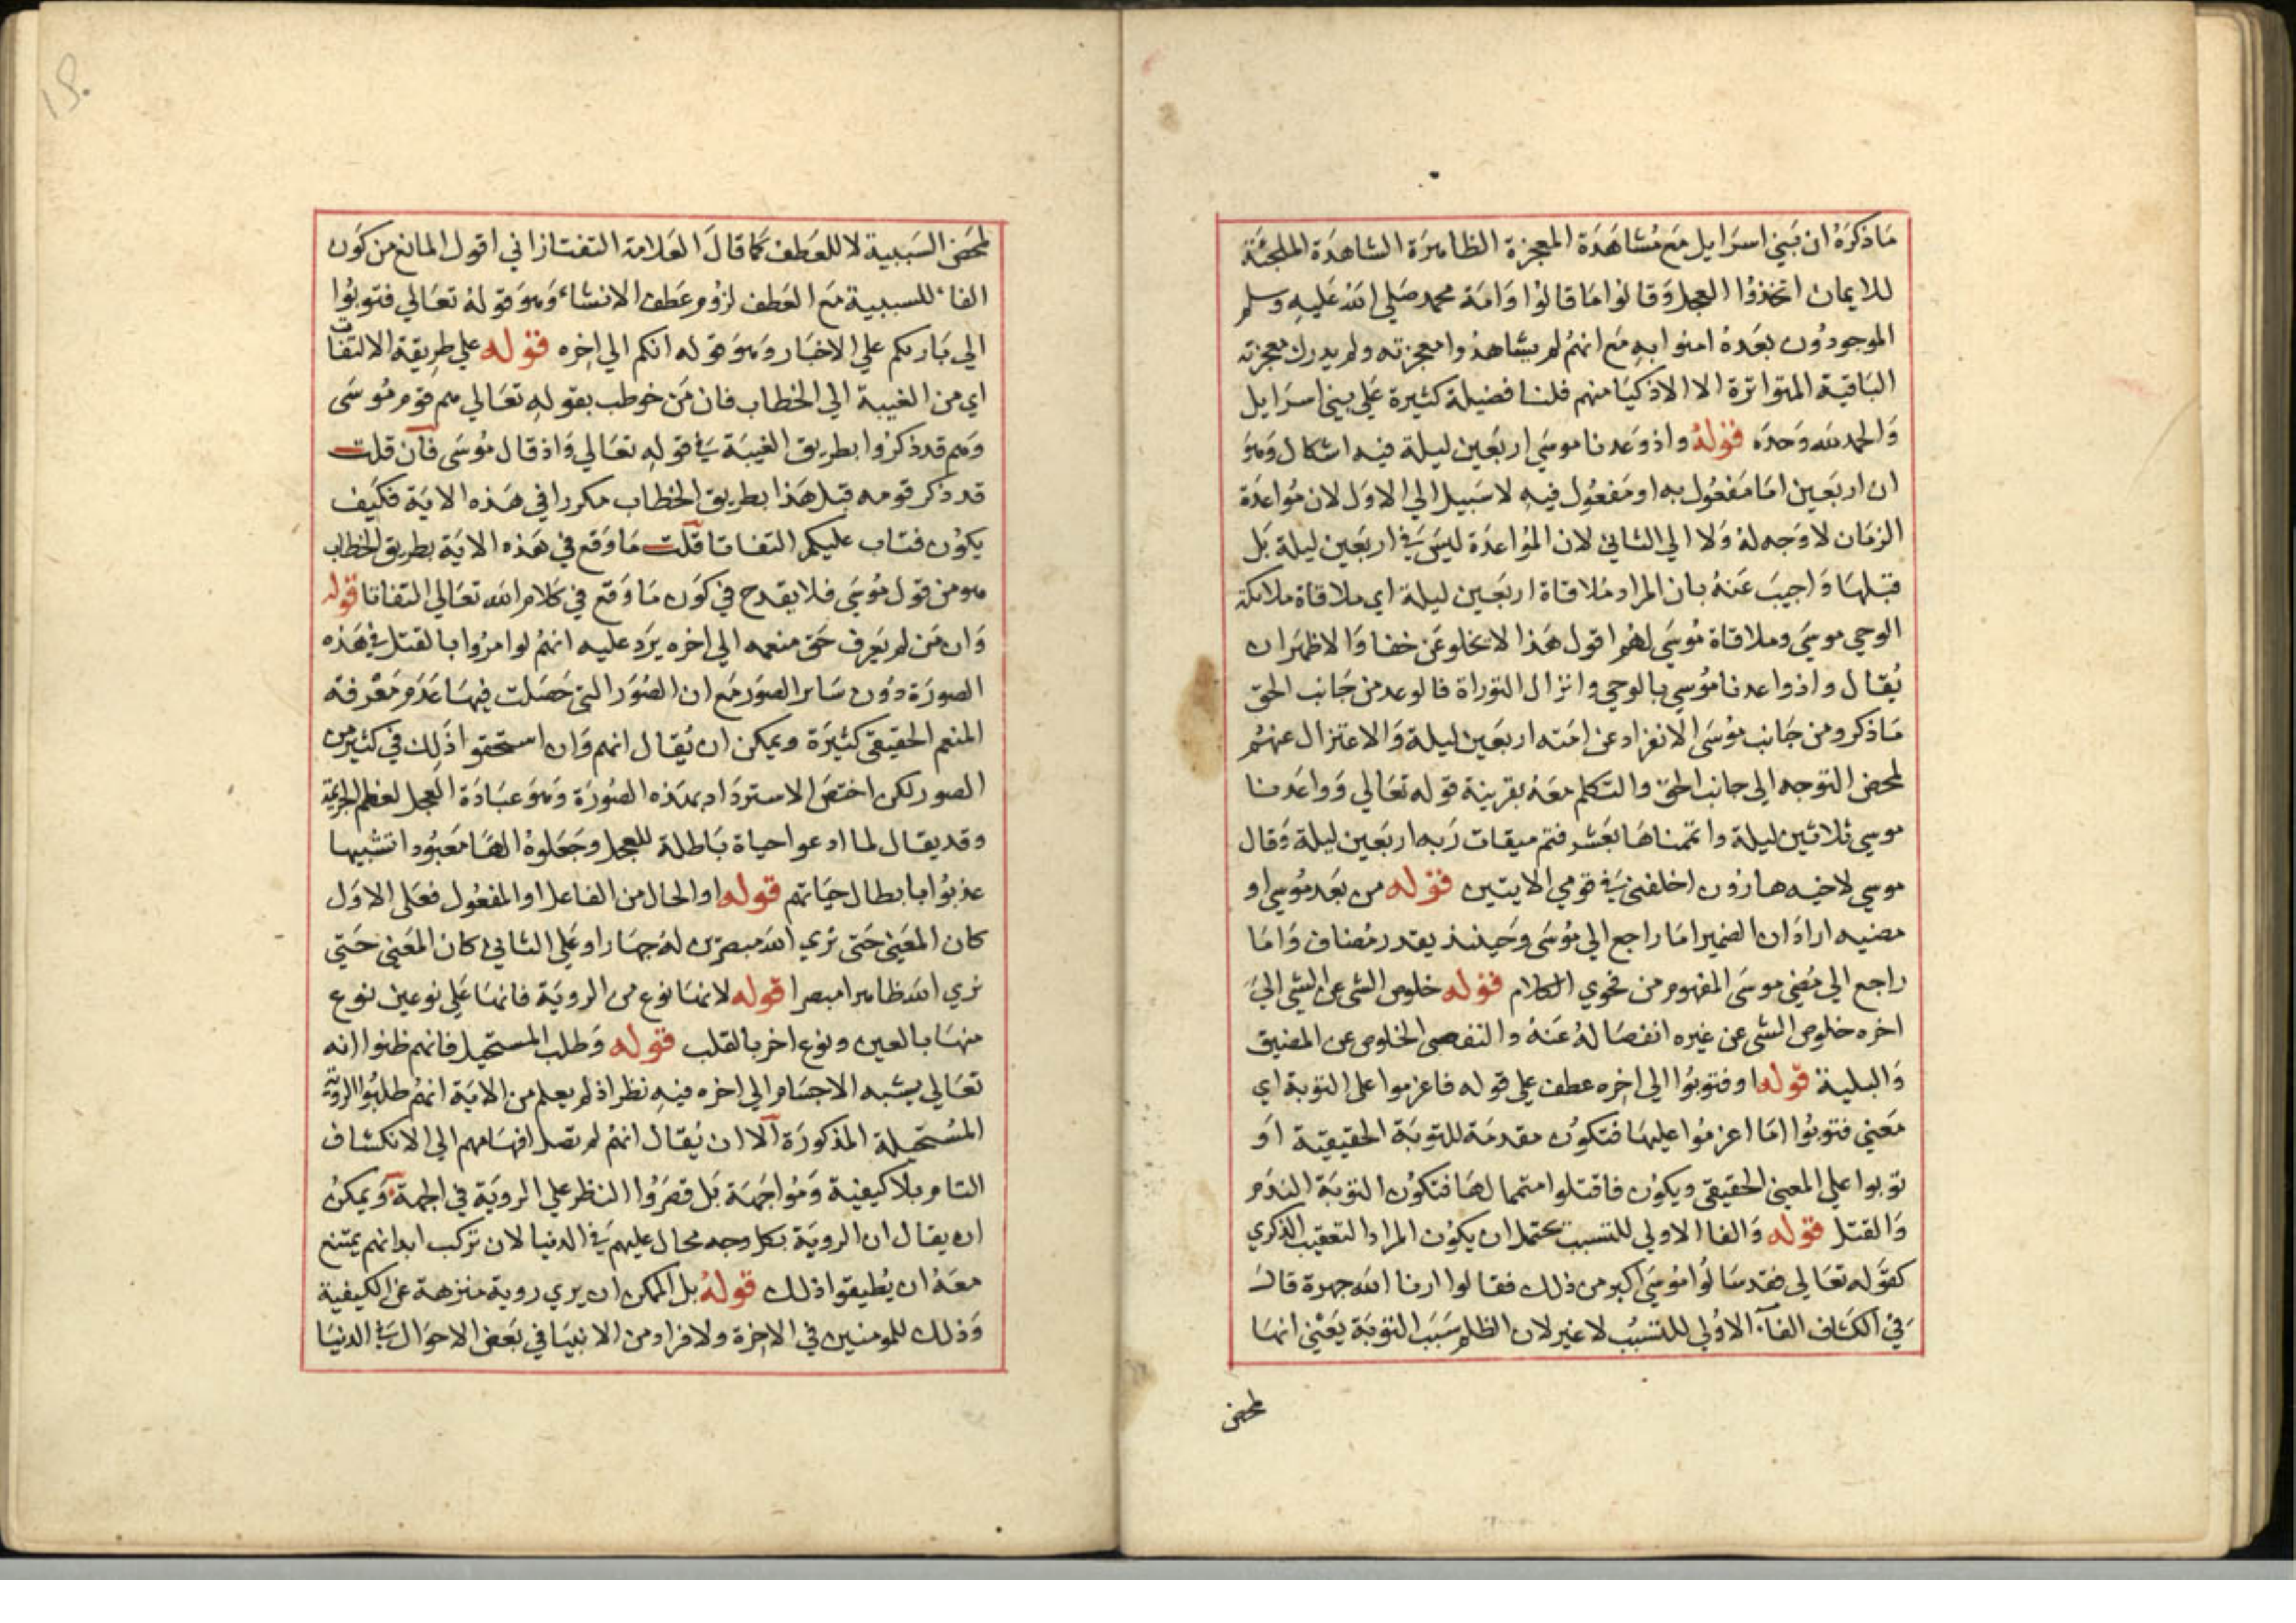 ما ذكره ان بني اسرايل مع مشاهدة المعجزة الظاهرة الشاهدة الملجئة
للايمان اتخذوا العجل وقالوا ما قالوا وامة محمد صلي الله عليه وسلم
الموجودون بعده امنوا به مع انهم لم يشاهدوا معجزته ولم يدرك معجزته
الباقية المتواترة الا الاذكيا منهم فلنا فضيلة كثيرة علي بني اسرايل
والحمد لله وحده قوله واذ وعدنا موسي اربعين ليلة فيه اشكال وهو
ان اربعين اما مفعول به او مفعول فيه لا سبيل الي الاول لان مواعدة
الزمان لا وجه له ولا الي الثاني لان المواعدة ليس في اربعين ليلة بل
قبلها واجيب عنه بان المراد ملاقاة اربعين ليلة اي ملاقاة ملائكة
الوحي موسي وملاقاة موسي لهم اقول هذا لا يخلو عن خفا والاظهر ان
يقال واذ واعدنا موسي بالوحي وانزال التوراة فالوعد من جانب الحق
ما ذكر ومن جانب موسي الانفراد عن امته اربعين ليلة والاعتزال عنهم
لمحض التوجه الي جانب الحق والتكلم معه بقرينة قوله تعالي وواعدنا
موسي ثلاثين ليلة واتممناها بعشر فتم ميقات ربه اربعين ليلة وقال
موسي لاخيه هارون اخلفني في قومي الايتين قوله من بعد موسي او
مضيه اراد ان الضمير اما راجع الي موسي وحينئذ يقدر مضاف واما
راجع الي مضي موسي المفهوم من فحوي الكلام قوله خلوص الشي عن الشي الي
اخره خلوص الشي عن غيره انفصاله عنه والتفصي الخلوص عن المضيق
والبلية قوله او فتوبوا الي اخره عطف علي قوله فاعزموا علي التوبة اي
معني فتوبوا اما اعزموا عليها فتكون مقدمة للتوبة الحقيقية او
توبوا علي المعني الحقيقي ويكون فاقتلوا متمما لها فتكون التوبة الندم
والقتل قوله والفا الاولي للتسبب يحتمل ان يكون المراد التعقيب الذكري
كقوله تعالي فقد سالوا موسي اكبر من ذلك فقالوا ارنا الله جهرة قال
في الكشاف الفا الاولي للتسبب لا غير لان الظلم سبب التوبة يعني انها
لمحض
لمحض السببية لا للعطف كما قال العلامة التفتازاني اقول المانع من كون
الفا للسببية مع العطف لزوم عطف الانشاء وهو قوله تعالي فتوبوا
الي باريكم علي الاخبار وهو قوله انكم الي اخره قوله علي طريقة الالتفات
اي من الغيبة الي الخطاب فان من خوطب بقوله تعالي هم قوم موسي
وهم قد ذكروا بطريق الغيبة في قوله تعالي واذ قال موسي فان قلت
قد ذكر قومه قبل هذا بطريق الخطاب مكررا في هذه الاية فكيف
يكون فتاب عليكم التفاتا قلت ما وقع في هذه الاية بطريق الخطاب
هو من قول موسي فلا يقدح في كون ما وقع في كلام الله تعالي التفاتا قوله
وان من لم يعرف حق منعمه الي اخره يرد عليه انهم لو امروا بالقتل في هذه
الصورة دون ساير الصور مع ان الصور التي حصلت فيها عدم معرفة
المنعم الحقيقي كثيرة ويمكن ان يقال انهم وان استحقوا ذلك في كثير من
الصور لكن اختص الاسترداد بهذه الصورة وهو عبادة العجل لعظم الجريمة
وقد يقال لما ادعوا حياة باطلة للعجل وجعلوه الها معبودا تشبيها
عذبوا بابطال حياتهم قوله او الحال من الفاعل او المفعول فعلي الاول
كان المعني حتي نري الله مبصرين له جهارا وعلي الثاني كان المعني حتي
نري الله ظاهرا مبصرا قوله لانها نوع من الروية فانها علي نوعين نوع
منها بالعين ونوع اخر بالقلب قوله وطلب المستحيل فانهم ظنوا انه
تعالي يشبه الاجسام الي اخره فيه نظر اذ لم يعلم من الاية انهم طلبوا الروية
المستحيلة المذكورة الا ان يقال انهم لم تصل افهامهم الي الانكشاف
التام بلا كيفية ومواجهة بل قصروا النظر علي الروية في الجهة ويمكن
ان يقال ان الروية بكل وجه محال عليهم في الدنيا لان تركب ابدانهم يمتنع
معه ان يطيقوا ذلك قوله بل الممكن ان يري روية منزهة عن الكيفية
وذلك للمومنين في الاخرة ولافراد من الانبيا في بعض الاحوال في الدنيا